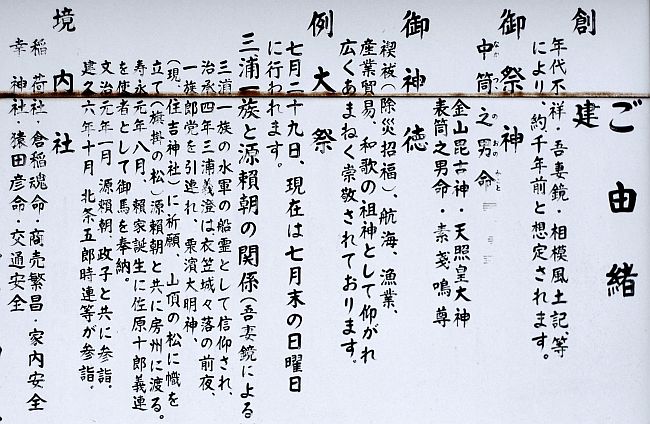 ご由緒
創建
年代不祥・吾妻鏡・相模風土記、等
により、約千年前と想定されます。
御祭神
中筒之男命
なかつつのおのみこと
金山昆古神・天照皇大神
表筒之男命・素戔鳴尊
御神徳
禊祓(除災招福)、航海、漁業、
産業貿易、和歌の祖神として仰がれ
広くあまねく崇敬されております。
例大祭
七月二十九日、現在は七月末の日曜日
に行われます。
三浦一族と源頼朝の関係(吾妻鏡による
三浦一族の水軍の船霊として信仰され、
治承四年三浦義澄は衣笠城々落の前夜、
一族郎党を引連れ、栗濱大明神、
(現、住吉神社)に祈願、山頂の松に幟を
立て(旗掛の松)源頼朝と共に房州に渡る。
寿永元年八月、頼家誕生に佐原十郎義連
を使者として御馬を奉納。
文治元年一月 源頼朝、政子と共に参詣。
建久六年十月 北条五郎時連等が参詣。
境内社
稲荷社・倉稲魂命・商売繁昌・家内安全
幸神社・猿田彦命・交通安全